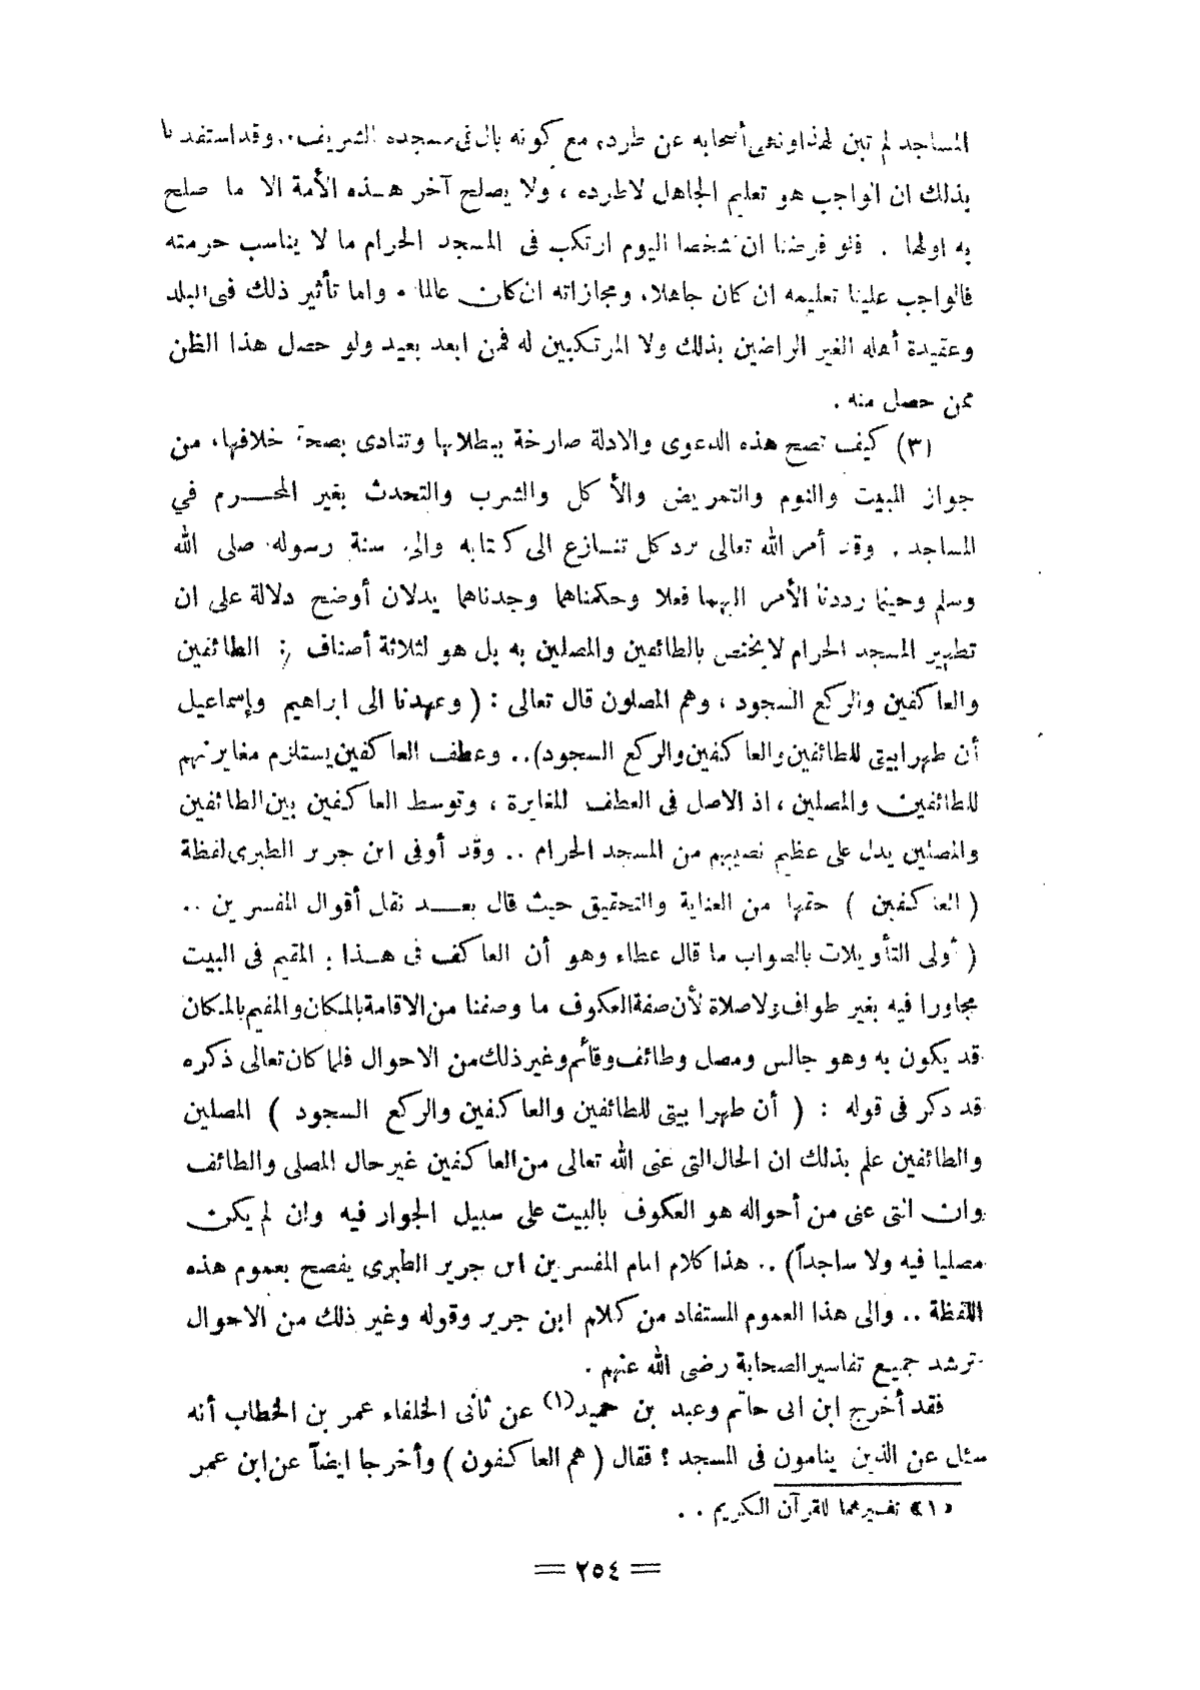 المساجد لم تبن لهذا ونهى أصحابه عن طرده مع كونه بال فى مسجده الشريف .. وقد استفدنا
بذلك ان الواجب هو تعليم الجاهل لا طرده ، ولا يصلح آخر هـذه الأمة الا ما صلح
به اولها . فلو فرضنا ان شخصا اليوم ارتكب فى المسجد الحرام ما لا يناسب حرمته
فالواجب علينا تعليمه ان كان جاهلا، ومجازاته ان كان عالما . واما تأثير ذلك فى البلد
وعقيدة أهله الغير الراضين بذلك ولا المرتكبين له فمن ابعد بعيد ولو حصل هذا الظن
ممن حصل منه .
(٣) كيف تصح هذه الدعوى والادلة صارخة ببطلانها وتنادى بصحة خلافها، من
جواز المبيت والنوم والتمريض والأكل والشرب والتحدث بغير المحـرم في
المساجد . وقد أمر الله تعالى برد كل تنـازع الى كتابه والى سنة رسوله صلى الله
وسلم وحينما رددنا الأمر اليهما فعلا وحكمناهما وجدناهما يدلان أوضح دلالة على ان
تطهير المسجد الحرام لا يختص بالطائفين والمصلين به بل هو لثلاثة أصناف : الطائفين
والعاكفين والركع السجود ، وهم المصلون قال تعالى : ( وعهدنا الى ابراهيم وإسماعيل
أن طهرا بيتى للطائفين والعاكفين والركع السجود).. وعطف العاكفين يستلزم مغايرتهم
للطائفين والمصلين ، اذ الاصل فى العطف للمغايرة ، وتوسط العاكفين بين الطائفين
والمصلين يدل على عظيم نصيبهم من المسجد الحرام .. وقد أوفى ابن جرير الطبرى لفظة
( العاكفين ) حقها من العناية والتحقيق حيث قال بعـد نقل أقوال المفسرين ..
( أولى التأويلات بالصواب ما قال عطاء وهو أن العاكف فى هـذا : المقيم فى البيت
مجاورا فيه بغير طواف ولا صلاة لأن صفة العكوف ما وصفنا من الاقامة بالمكان والمقيم بالمكان
قد يكون به وهو جالس ومصل وطائف وقائم وغير ذلك من الاحوال فلما كان تعالى ذكره
قد ذكر فى قوله : ( أن طهرا بيتى للطائفين والعاكفين والركع السجود ) المصلين
والطائفين علم بذلك ان الحال التى عنى الله تعالى من العاكفين غير حال المصلى والطائف
وان التى عنى من أحواله هو العكوف بالبيت على سبيل الجوار فيه وان لم يكن
مصليا فيه ولا ساجداً) .. هذا كلام امام المفسرين ابن جرير الطبرى يفصح بعموم هذه
اللفظة .. والى هذا العموم المستفاد من كلام ابن جرير وقوله وغير ذلك من الاحوال
ترشد جميع تفاسير الصحابة رضى الله عنهم .
فقد أخرج ابن ابى حاتم وعبد بن حميد(١) عن ثانى الخلفاء عمر بن الخطاب أنه
سئل عن الذين ينامون فى المسجد ؟ فقال ( هم العاكفون ) وأخرجا ايضاً عن ابن عمر
«١» تفسيرهما للقرآن الكريم . .
= ٢٥٤ =